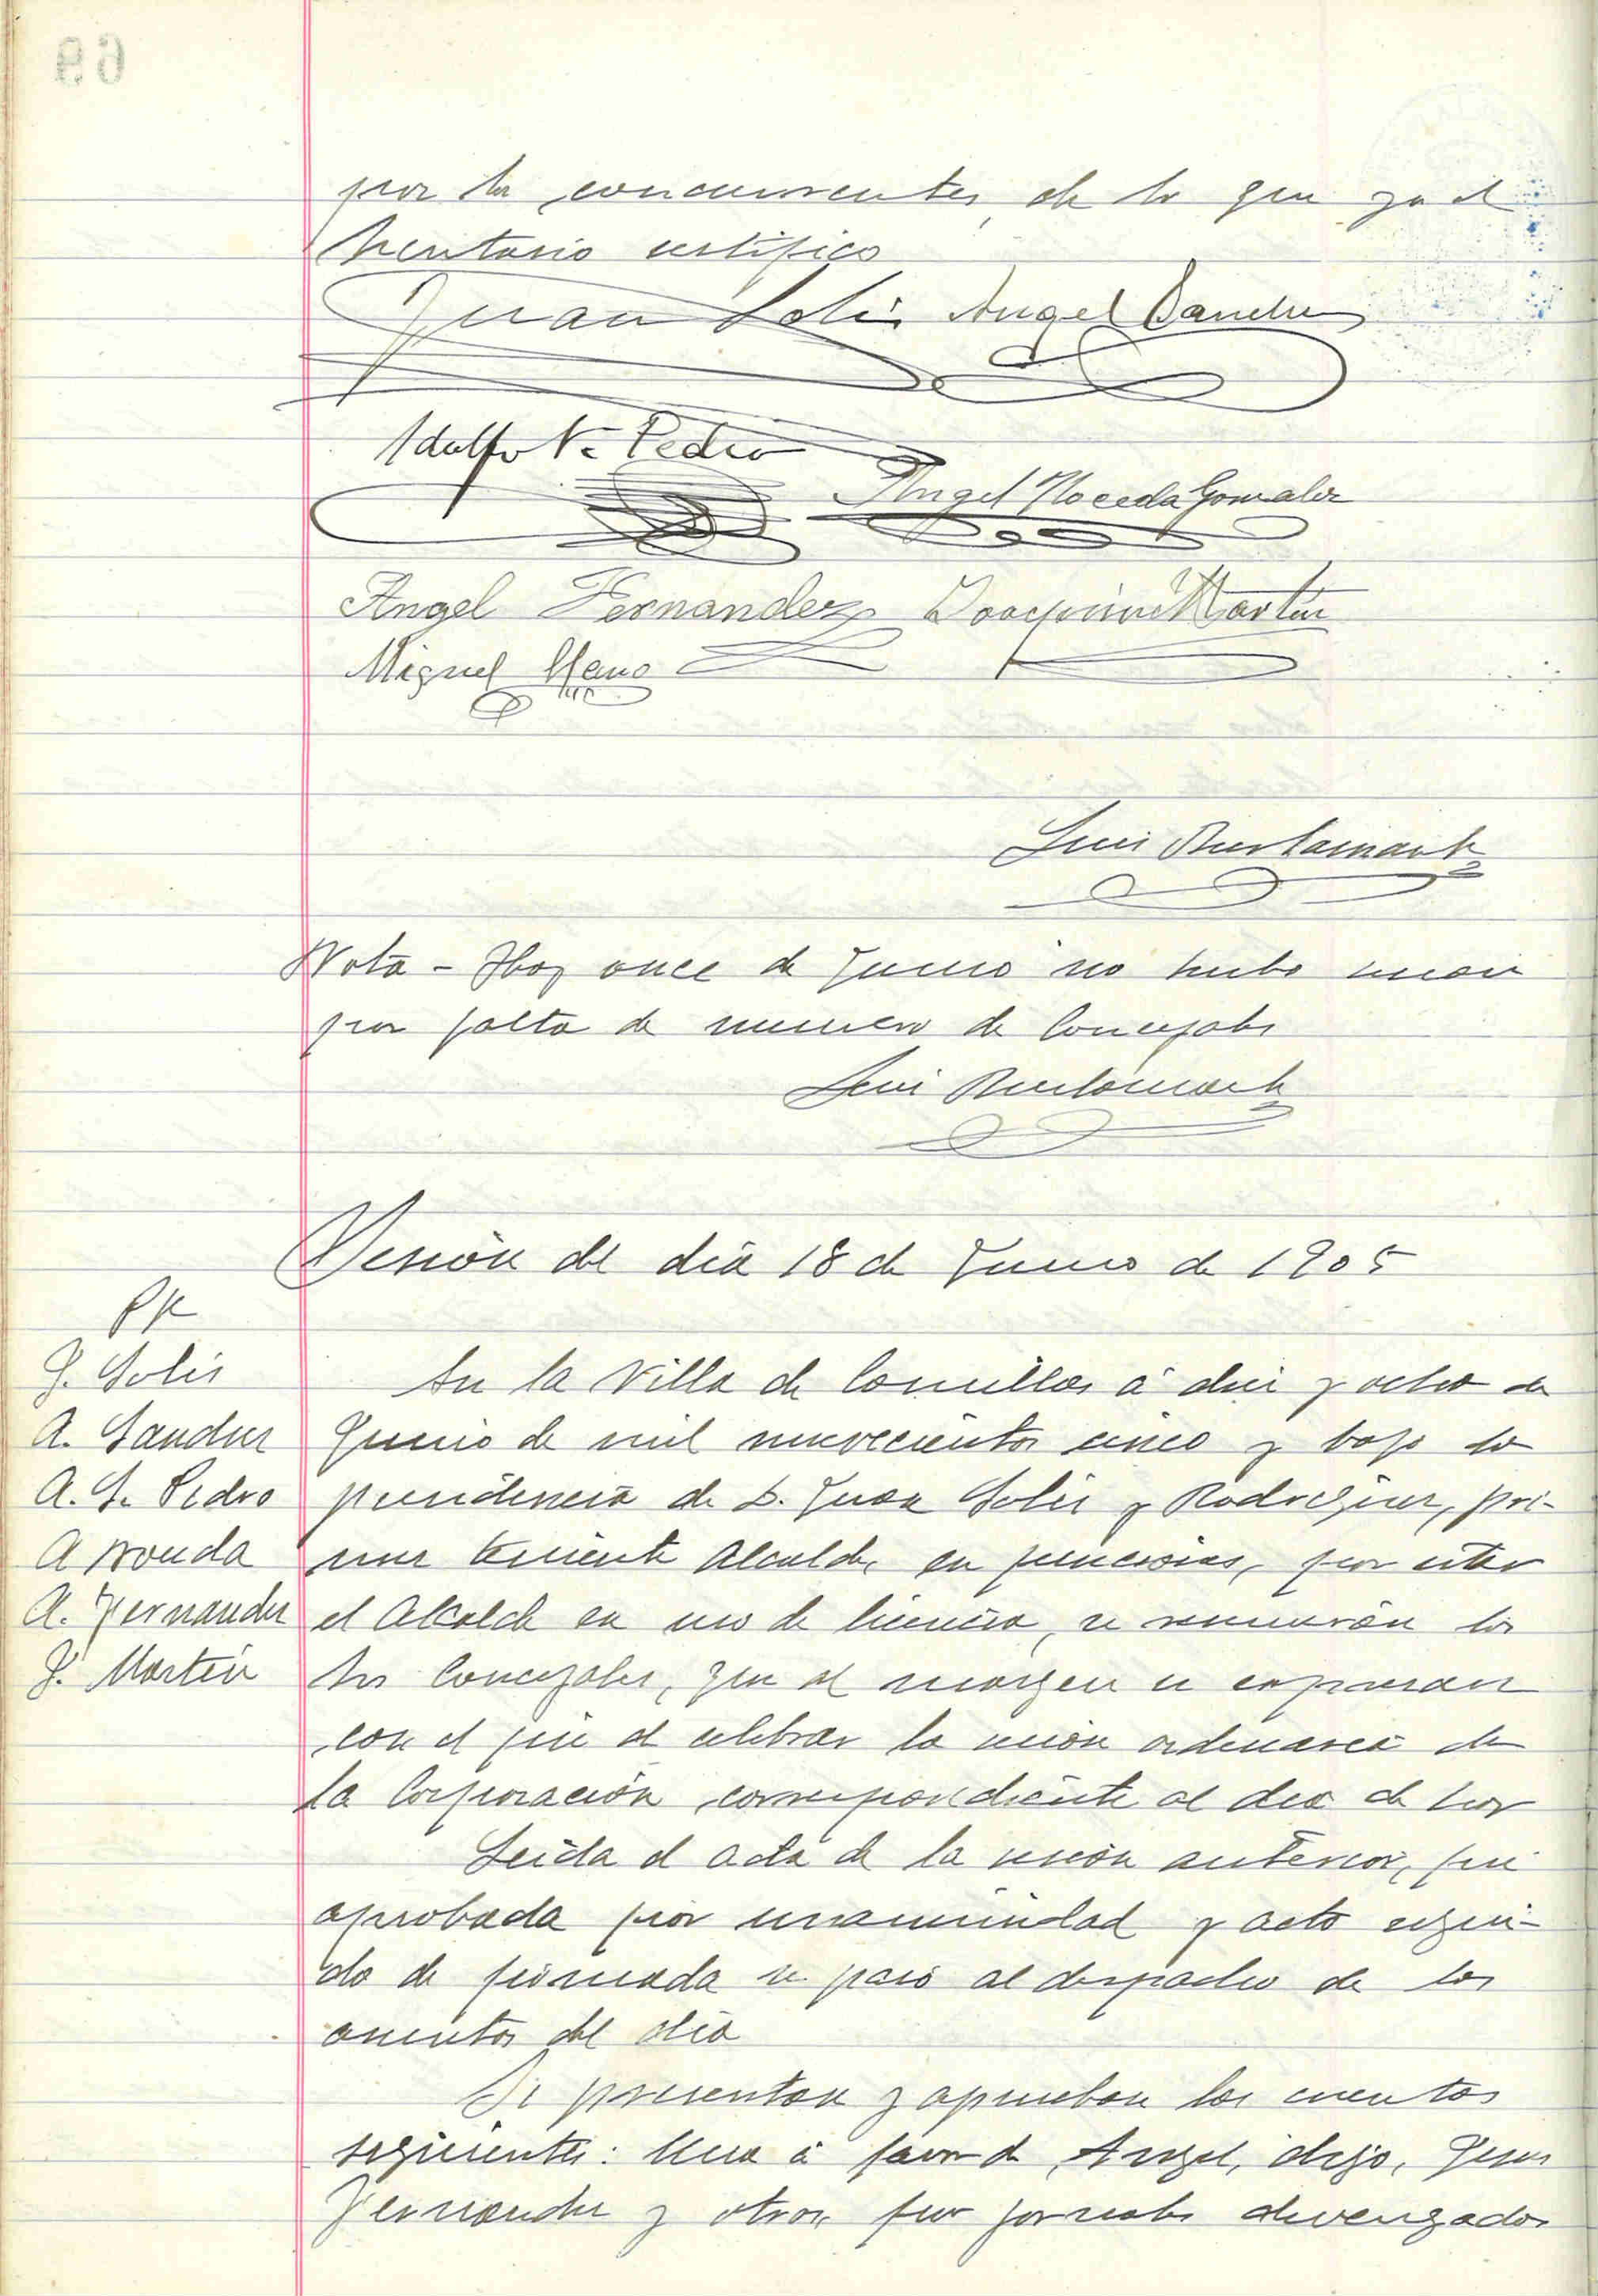 por los concurrentes, de lo que yo el
Secretario certifico
Juan Solis Angel Sanchez
Adolfo S. Pedro
Angel Noceda Gonzalez
Angel Fernandez Joaquin Martin
Miguel
Luis Bustamante
Nota - Hoy once de Junio no hubo sesion
por falta de numero de Concejales
Luis Bustamante
Sesión del dia 18 de Junio de 1905
J. Solis
A. Sanchez
A. S. Pedro
A Noceda
A. Fernandez
J. Martin
En la Villa de Comillas á diez y ocho de
Junio de mil novecientos cinco y bajo la
presidencia de D. Juan Solis y Rodriguez, pri-
mer teniente Alcalde, en funciones, por estar
el Alcalde en uso de licencia, se reunieron los
Sres Concejales, que al margen se expresan
con el fin de celebrar la sesión ordinaria de
la Corporación, correspondiente al dia de hoy
Leida el acta de la sesión anterior, fué
aprobada por unanimidad y acto segui-
do de firmada se pasó al despacho de los
asuntos del dia
Se presentan y aprueban las cuentas
siguientes: Una á favor de Angel, Jesus
Fernandez y otros por jornales devengados